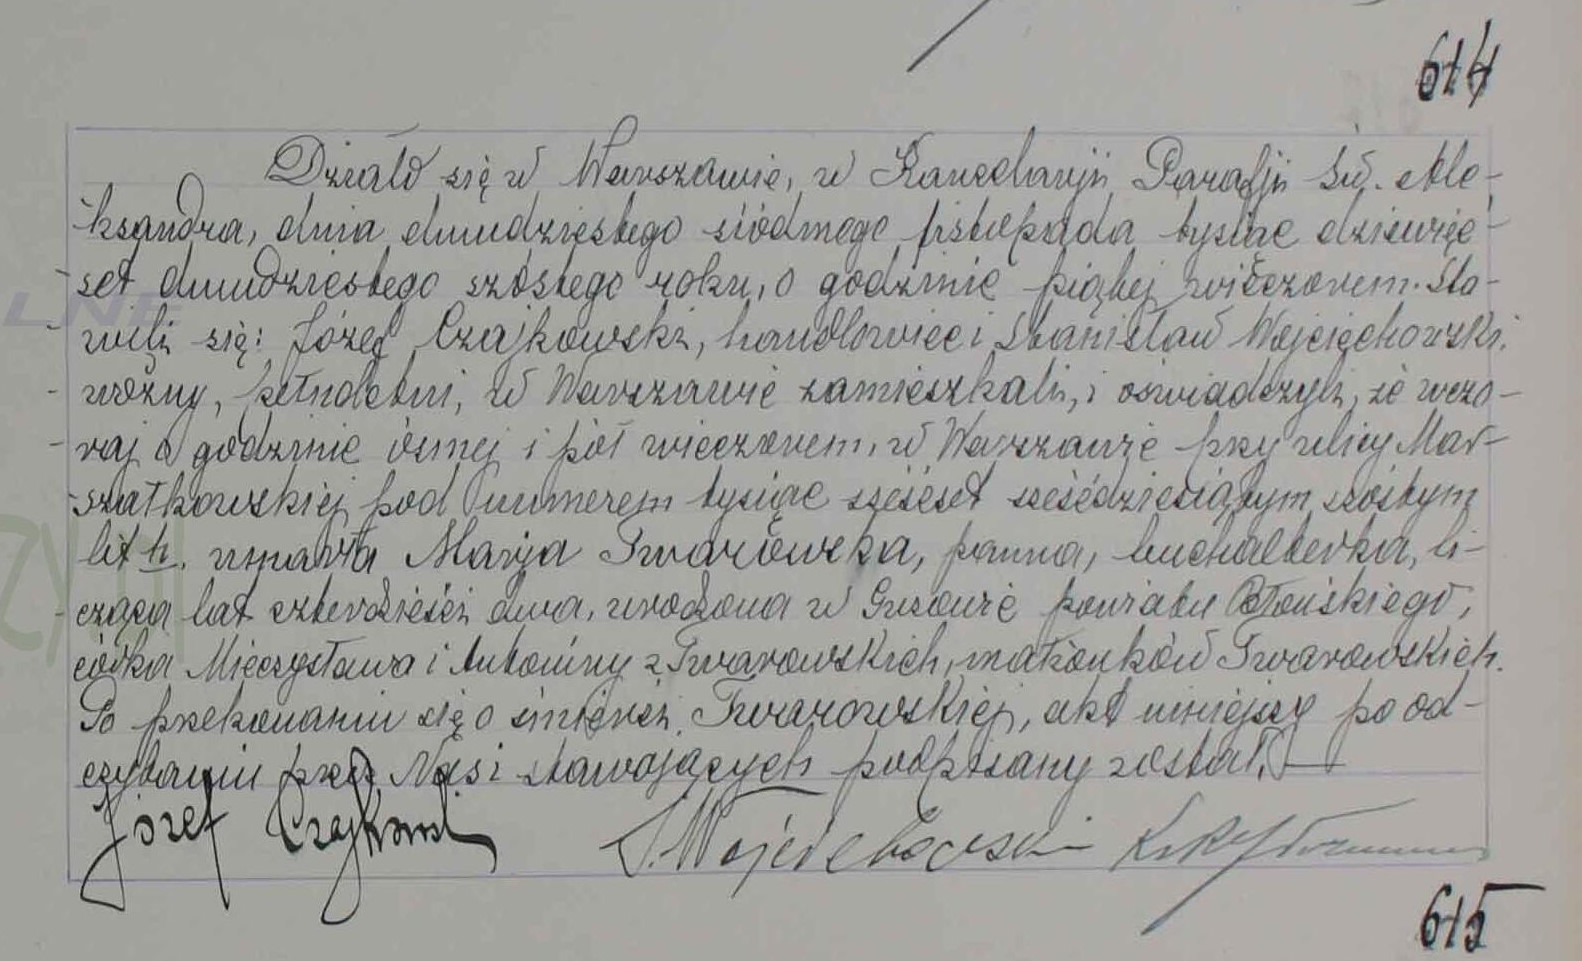 614
Działo się w Warszawie, w Kancelaryji Parafji Św. Ale-
ksandra, dnia dwudziestego siódmego listopada tysiąc dziewięć-
set dwudziestego szóstego roku, o godzinie piątej wieczorem. Sta-
wili się: Józef Czajkowski, handlowiec i Stanisław Wojciechowski,
woźny, pełnoletni, w Warszawie zamieszkali, i oświadczyli, że wczo-
raj o godzinie ósmej i pół wieczorem, w Warszawie przy ulicy Mar-
szałkowskiej pod numerem tysiąc sześćset sześćdziesiątym szóstym
lit h. umarła Marja Twarowska, panna, buchalterka, li-
cząca lat czterdzieści dwa, urodzona w Guzowie powiatu Błońskiego,
córka Mieczysława i Antoniny z Twarowskich, małżonków Twarowskich.
Po przekonaniu się o śmierci Twarowskiej, akt niniejszy po od-
czytaniu przez Nas i stawających podpisany został.
Józef Czajkowski S. Wojciechowski
615
LNE